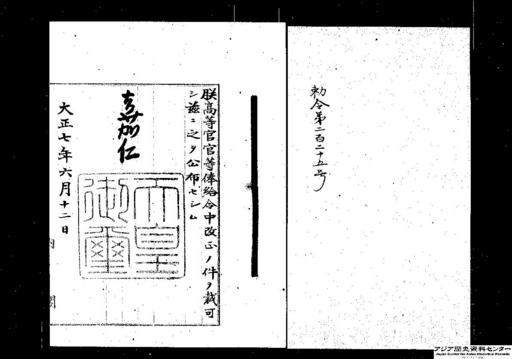 勅令第二百二十五号
朕高等官官等俸給令中改正ノ件ヲ裁可
シ茲ニ之ヲ公布セシム
嘉仁
天皇
御璽
大正七年六月十二日
内
閣
アジア歴史資料センター
Japan Center for Asian Historical Records